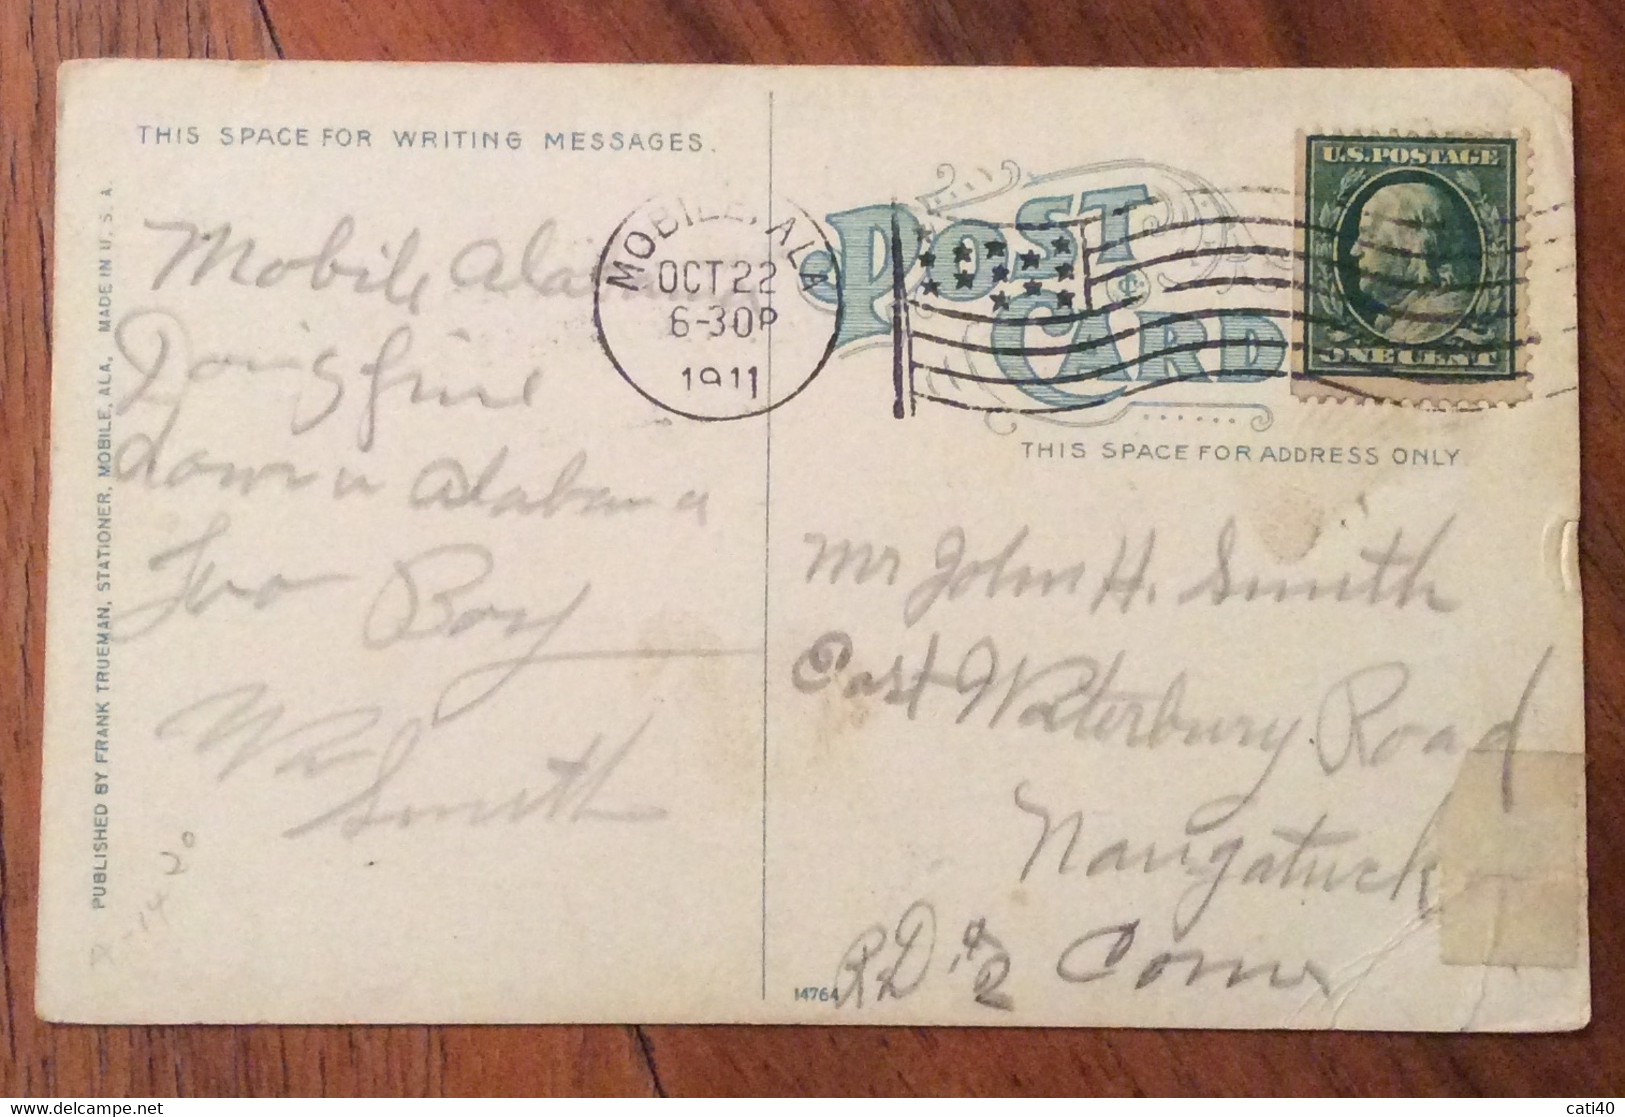 THIS SPACE FOR WRITING MESSAGES.
Mobile Alabama
Doing fine
down in Alabama
Two Boy
Wm
Smith
PUBLISHED BY FRANK TRUEMAN, STATIONER, MOBILE, ALA. MADE IN U.S.A.
MOBILE, ALA
OCT 22
6-30P
1911
POST CARD
U.S. POSTAGE
ONE CENT
THIS SPACE FOR ADDRESS ONLY
Mr John H. Smith
East Waterbury Road
Naugatuck
R.D. #2 Conn
14764
cati40